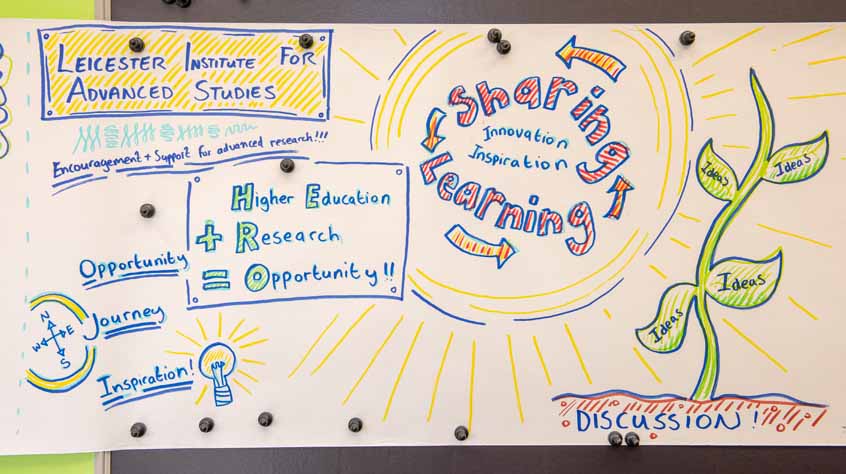 LEICESTER INSTITUTE FOR
ADVANCED STUDIES
Encouragement + Support for advanced research!!!
Higher Education
+ Research
= Opportunity!!
Opportunity
Journey
N
W E
S
Inspiration!
Sharing
Innovation
Inspiration
Learning
Ideas
Ideas
Ideas
Ideas
DISCUSSION!